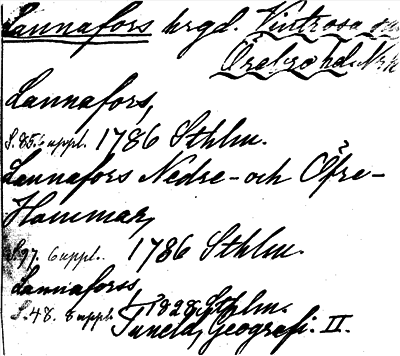 Lannafors hrgd. Vintrosa
Örebro hd. Nrk
Lannafors,
S. 85. 6 uppl. 1786 Sthlm.
Lannafors Nedre- och Öfre-
Hammar,
S. 97. 6 uppl. 1786 Sthlm.
Lannafors,
S. 48. 8 uppl. 1828 Sthlm.
Tuneld, Geografi. II.